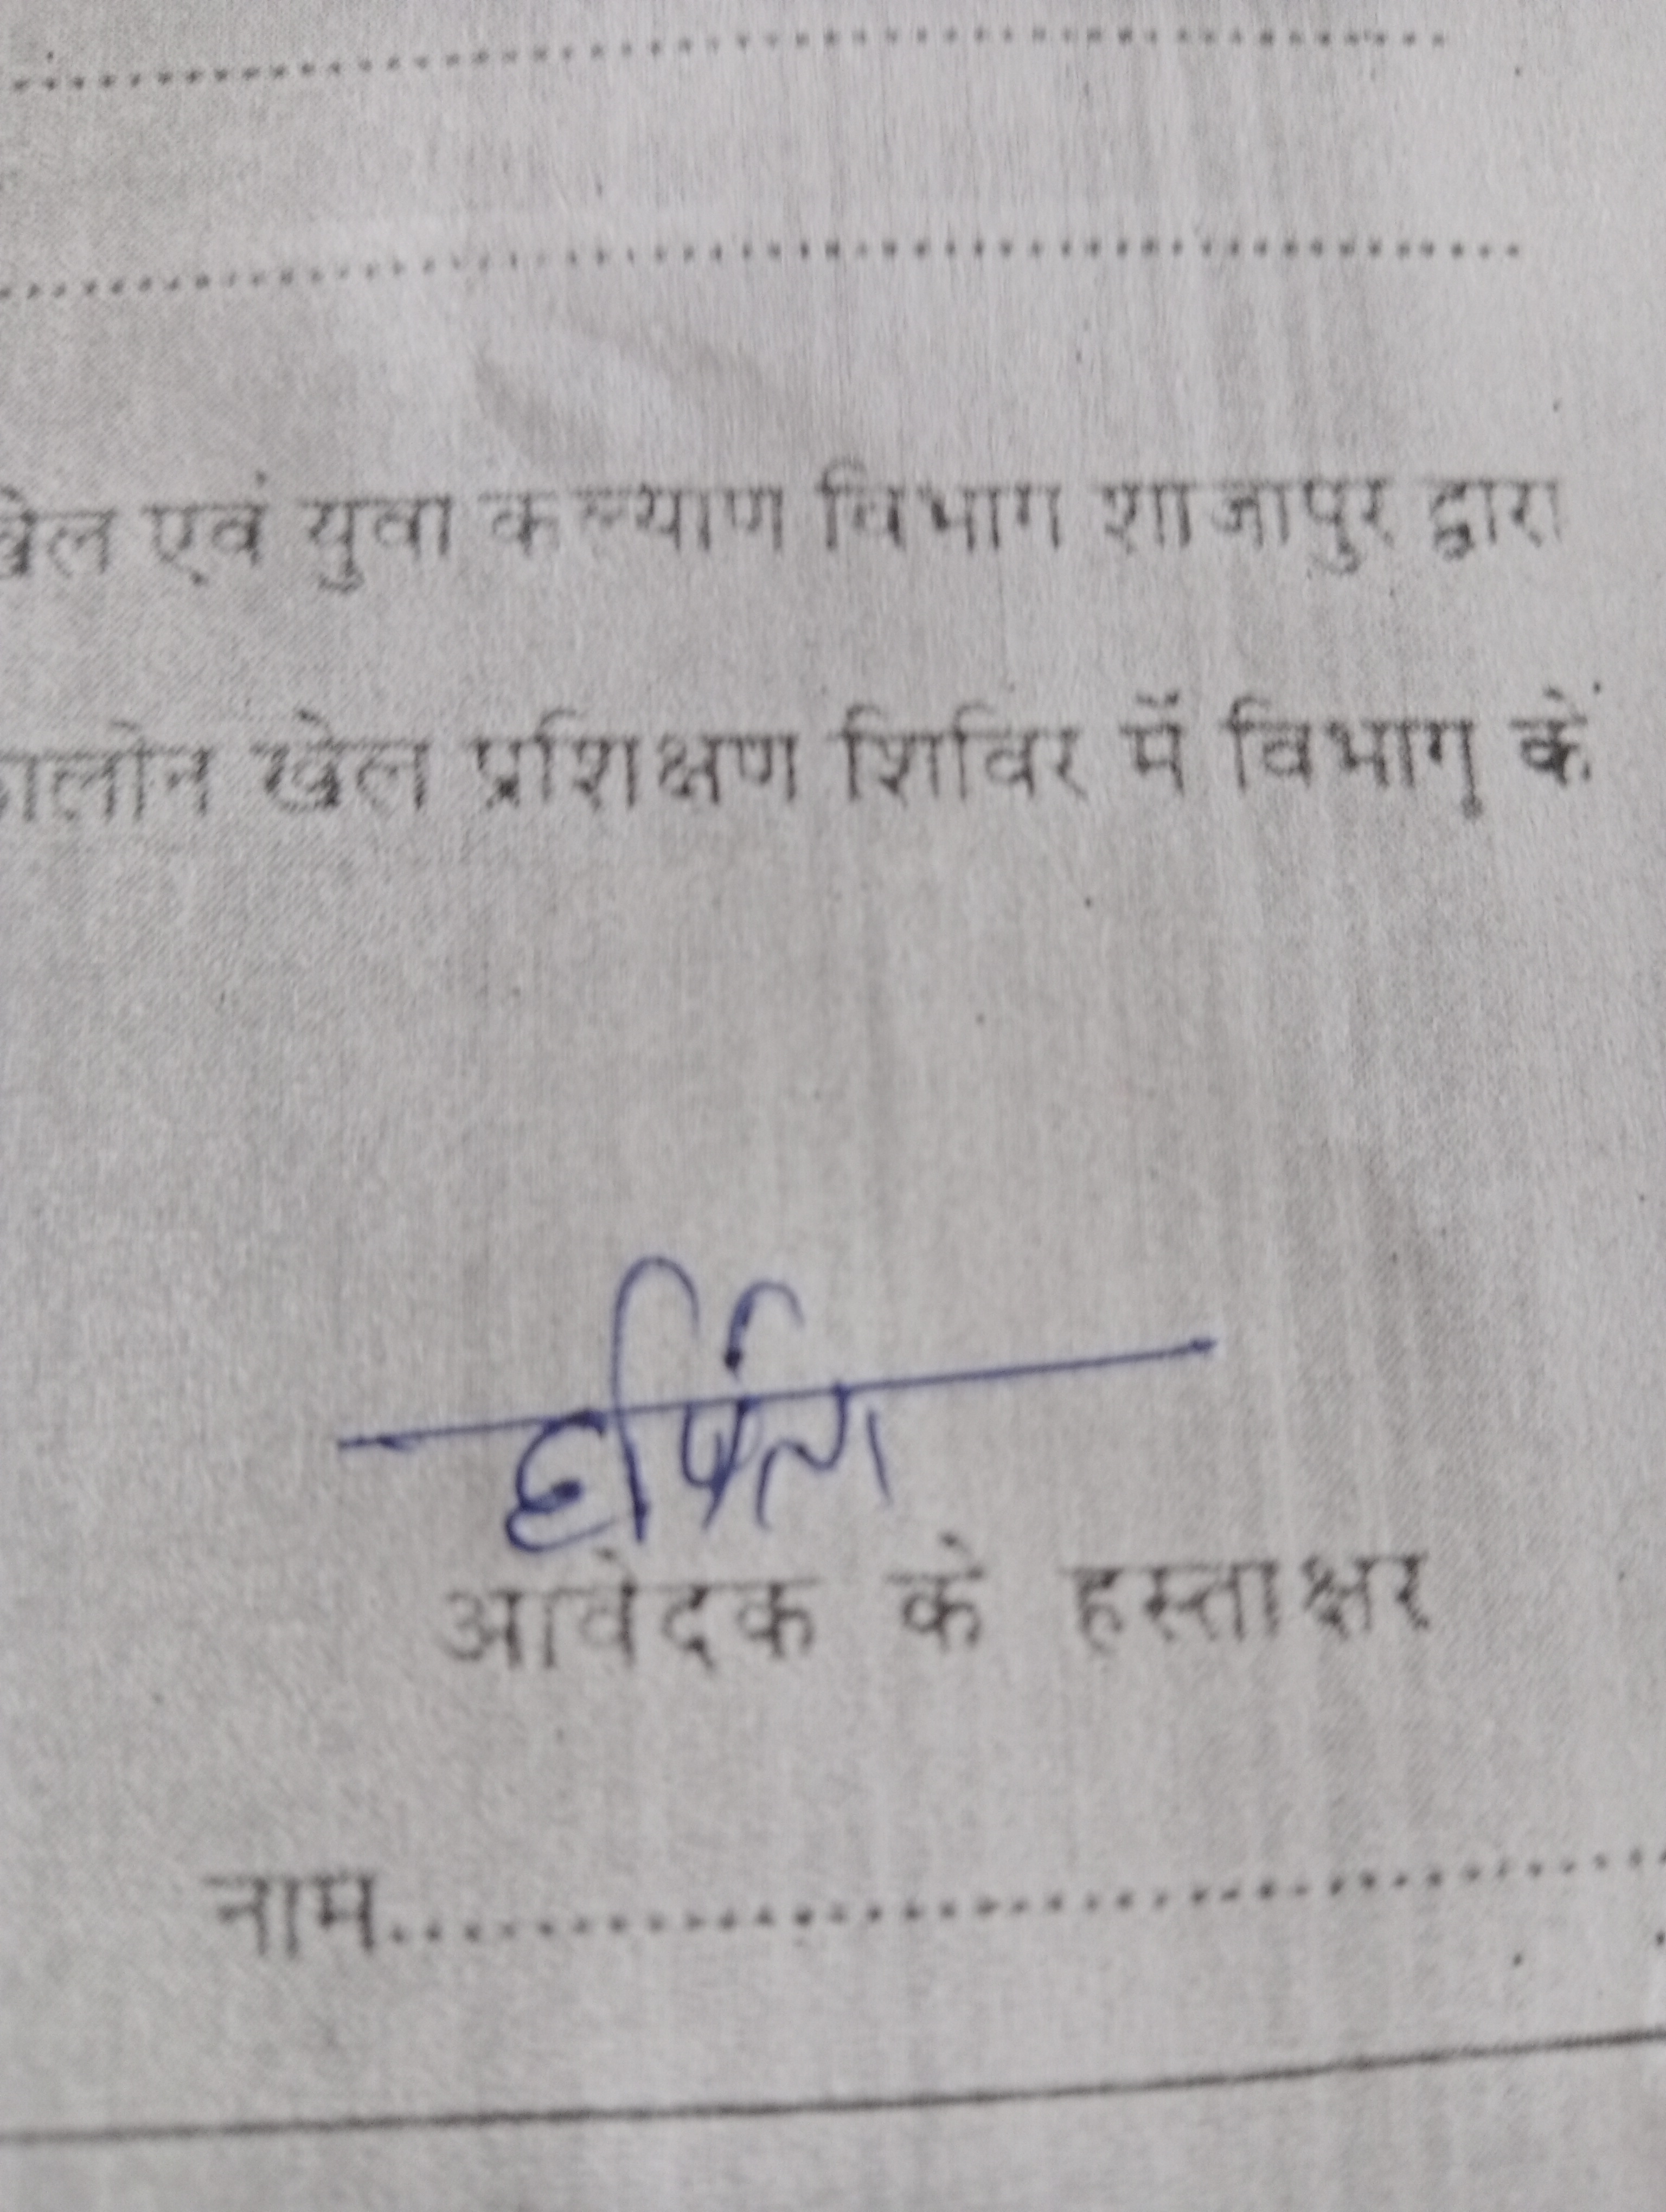 .....................................................
.....................................................
खेल एवं युवा कल्याण विभाग शाजापुर द्वारा
कालीन खेल प्रशिक्षण शिविर में विभाग के
आवेदक के हस्ताक्षर
नाम..............................